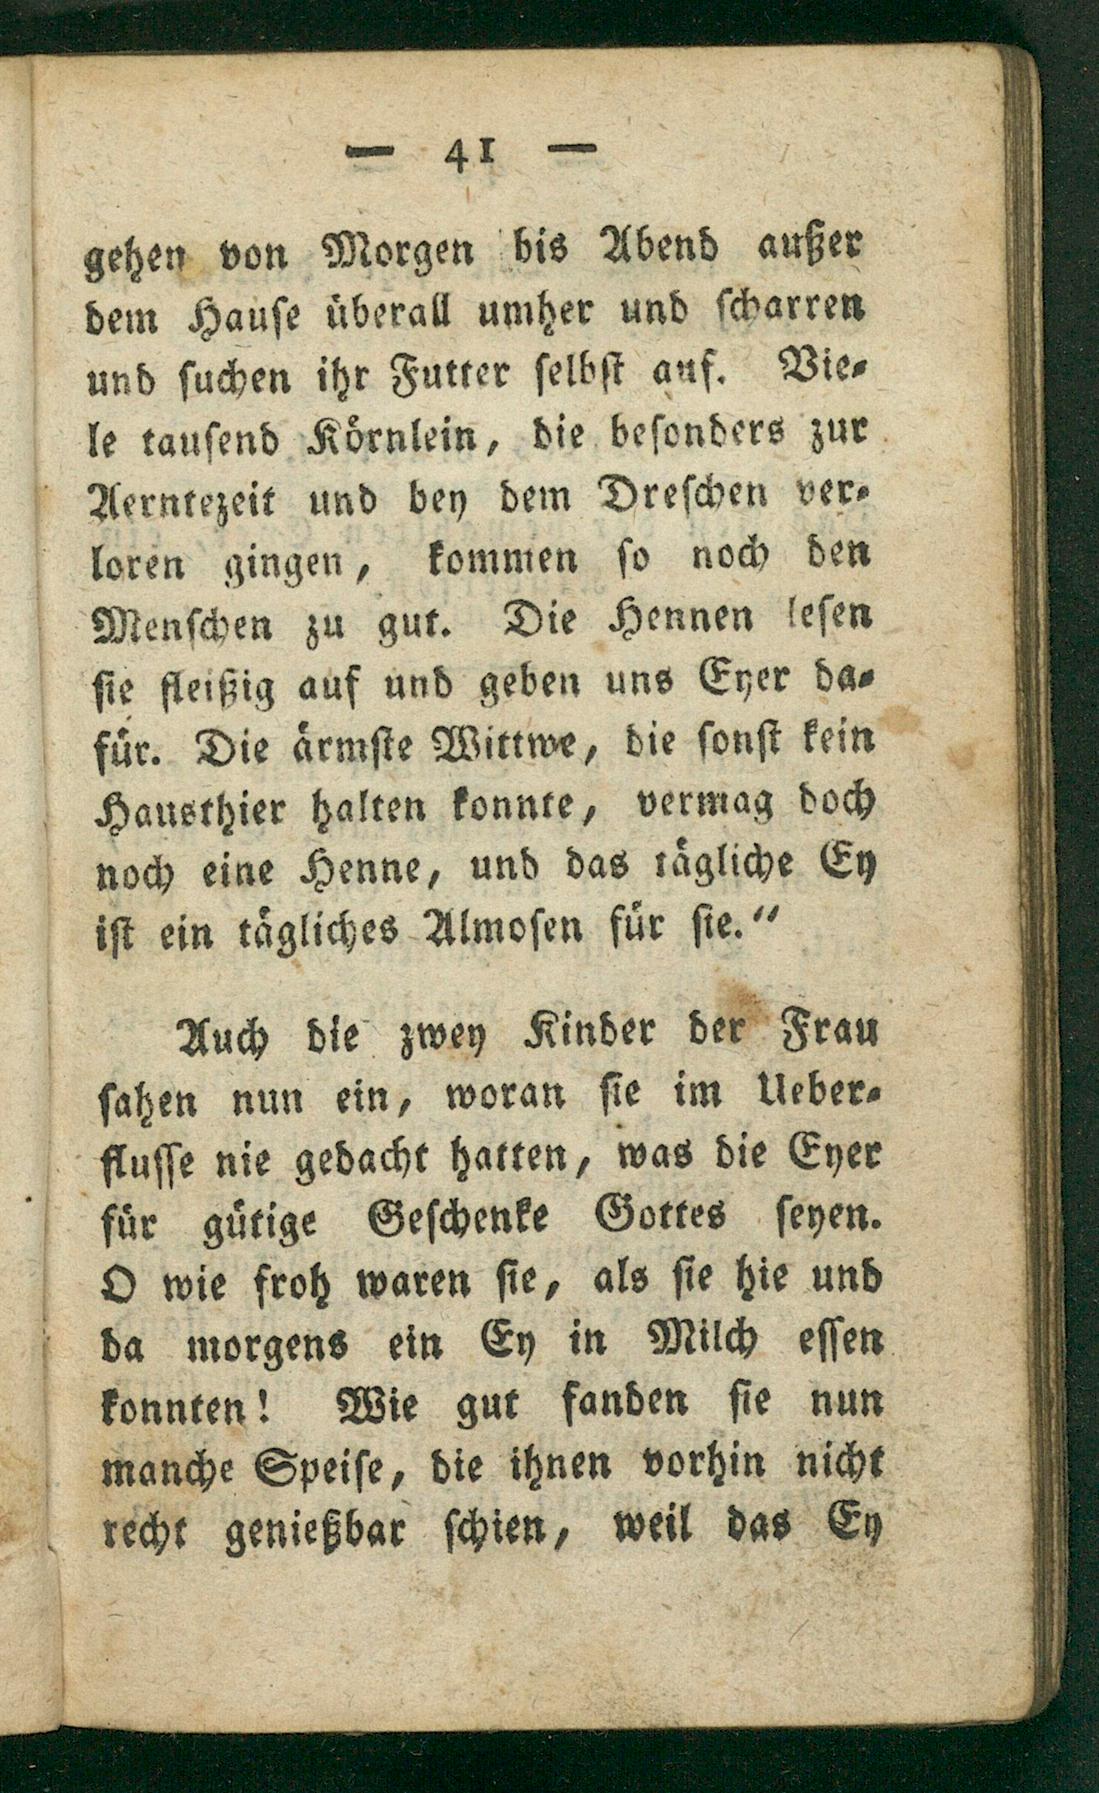 — 41 —
gehen von Morgen bis Abend außer
dem Hause überall umher und scharren
und suchen ihr Futter selbst auf. Vie-
le tausend Körnlein, die besonders zur
Aerntezeit und bey dem Dreschen ver-
loren gingen, kommen so noch den
Menschen zu gut. Die Hennen lesen
sie fleißig auf und geben uns Eyer da-
für. Die ärmste Wittwe, die sonst kein
Hausthier halten konnte, vermag doch
noch eine Henne, und das tägliche Ey
ist ein tägliches Almosen für sie.“
Auch die zwey Kinder der Frau
sahen nun ein, woran sie im Ueber-
flusse nie gedacht hatten, was die Eyer
für gütige Geschenke Gottes seyen.
O wie froh waren sie, als sie hie und
da morgens ein Ey in Milch essen
konnten! Wie gut fanden sie nun
manche Speise, die ihnen vorhin nicht
recht genießbar schien, weil das Ey